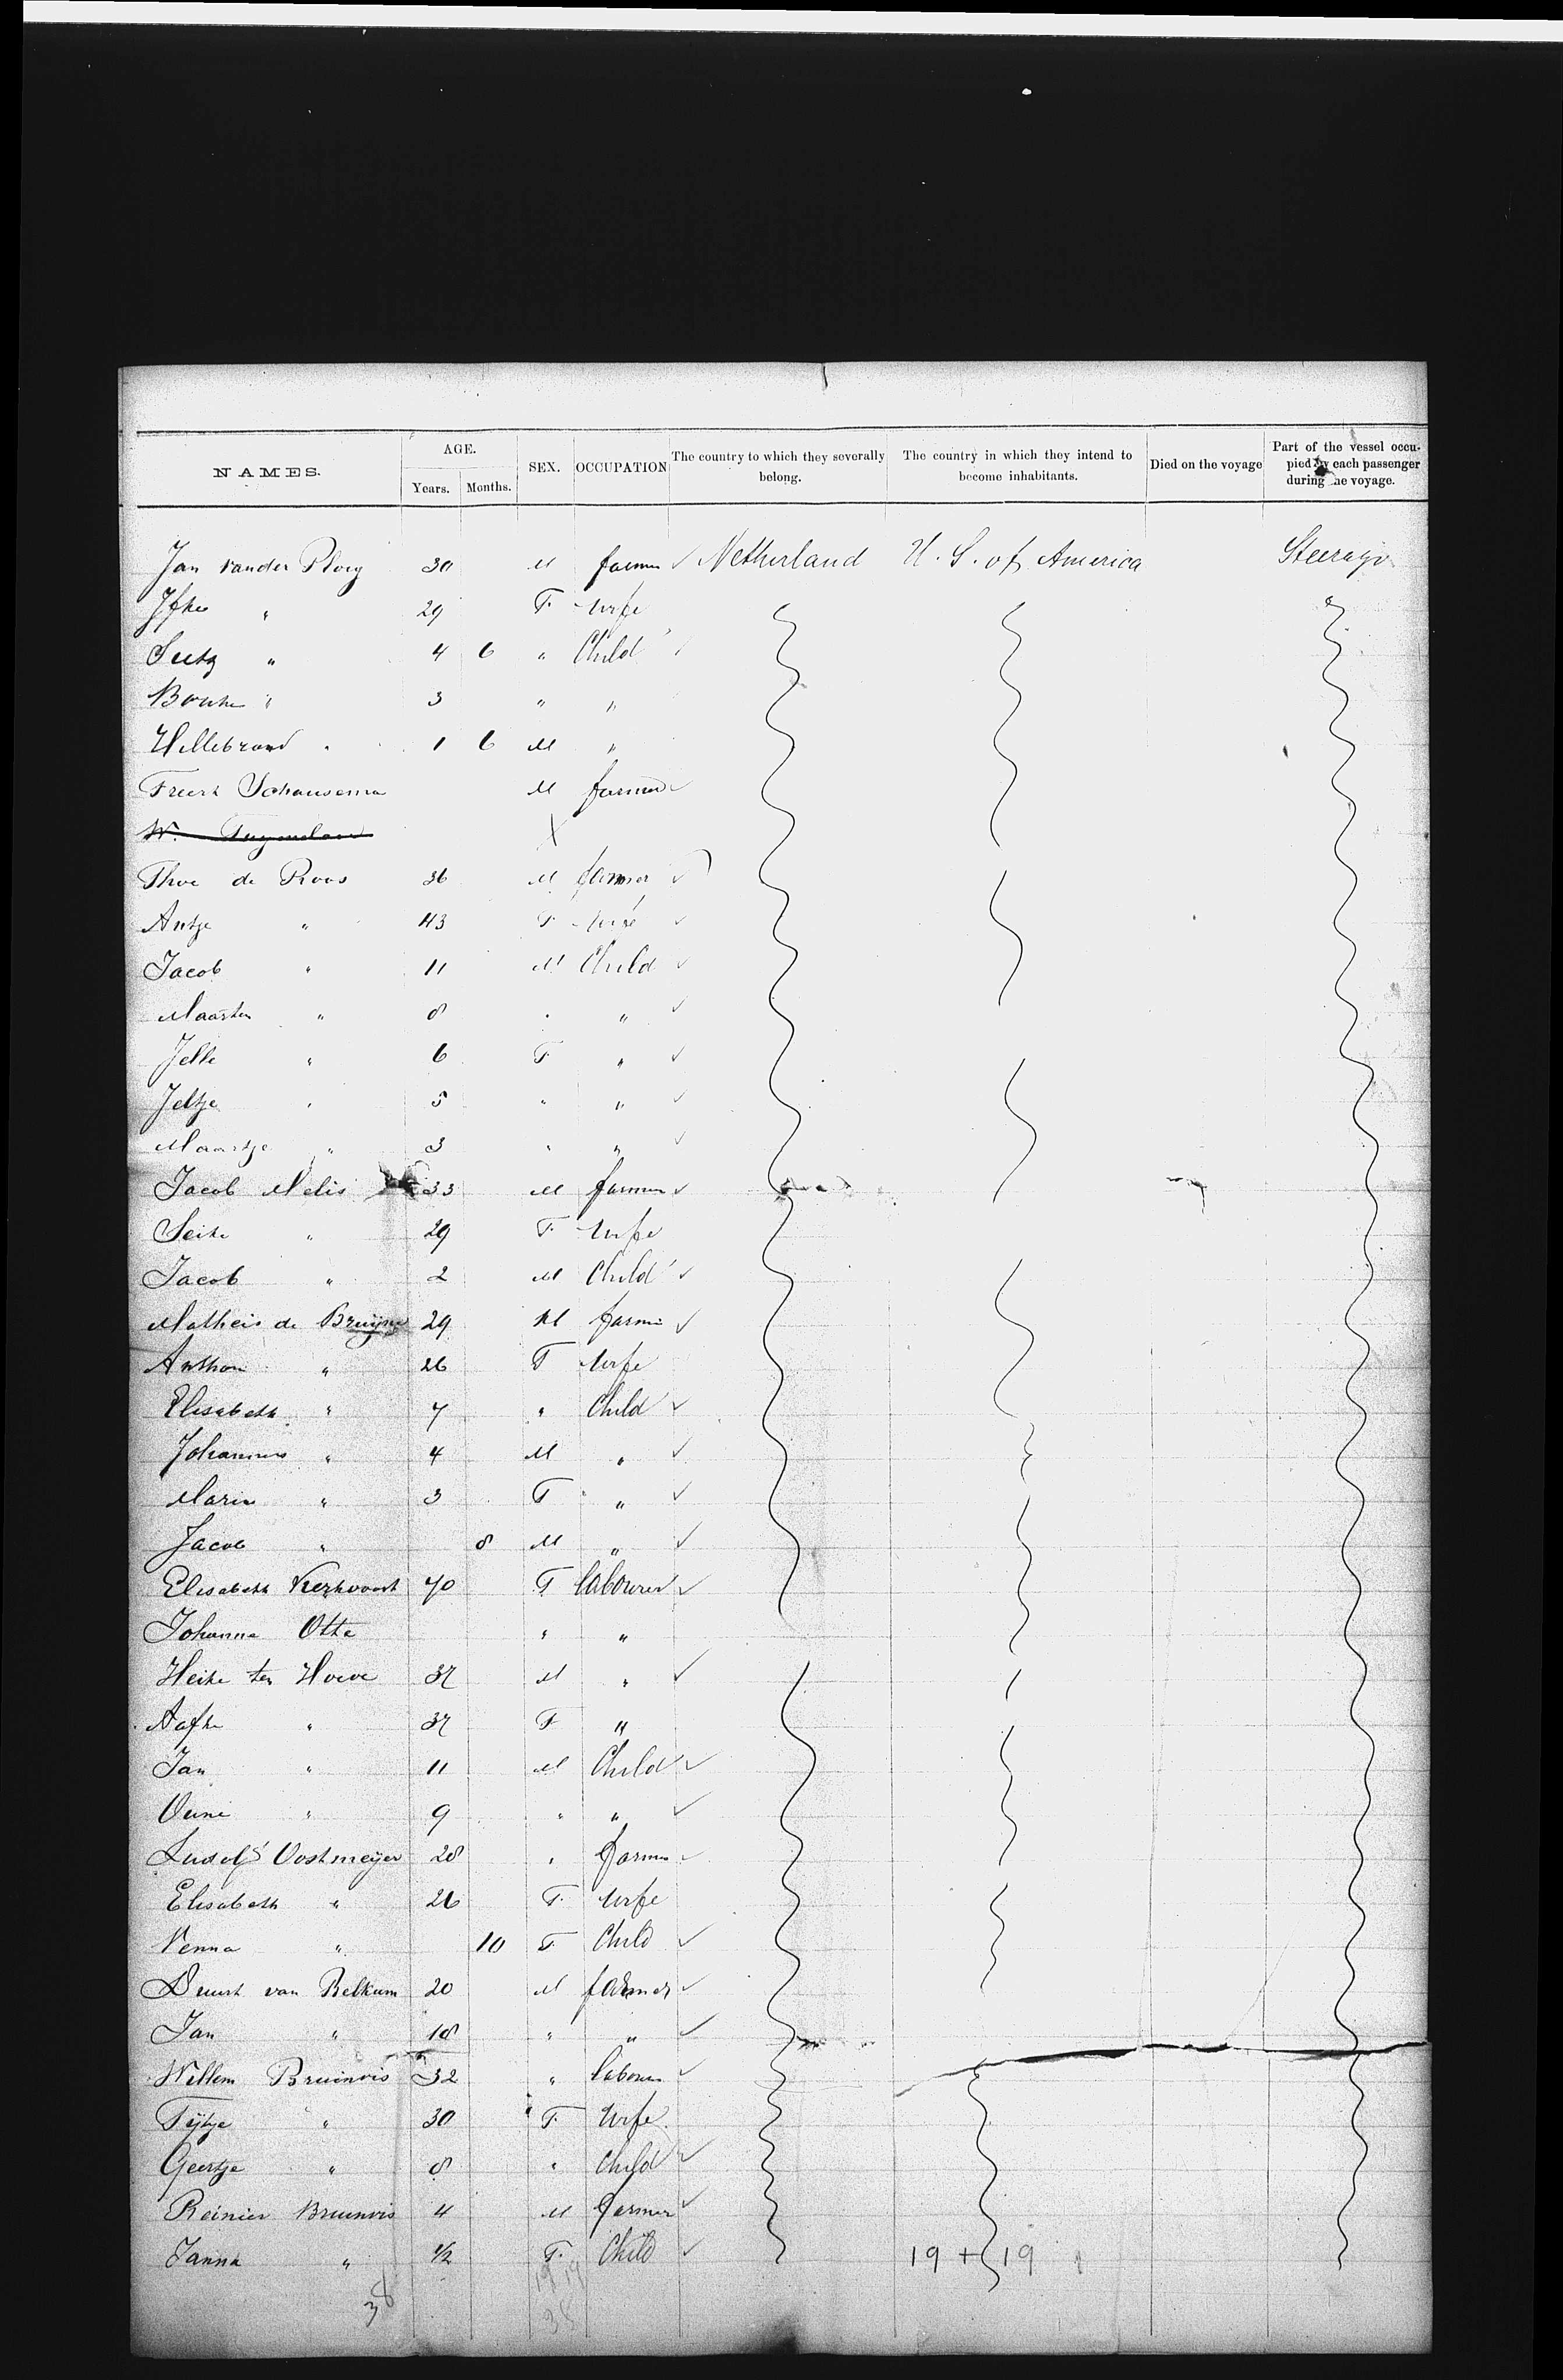 NAMES. AGE. Years. Months. SEX. OCCUPATION The country to which they severally belong. The country in which they intend to become inhabitants. Died on the voyage Part of the vessel occupied by each passenger during the voyage.
Jan vander Ploeg 30 M farmer ✓ Netherland U. S. of America Steerage
Jfke " 29 F. wife
Sietz " 4 6 " Child
Bouke " 3 " "
Hillebrand " 1 6 M "
Freerk Schansema M farmer ✓
W. X
de Roos 36 M farmer ✓
Antje " 43 F wife ✓
Jacob " 11 M Child ✓
Maarten " 8 " " ✓
Jelle " 6 F " ✓
Jeltje " 5 " " ✓
Maartje " 3 " " ✓
Jacob Melis 33 M farmer ✓
Seike " 29 F. wife
Jacob " 2 M Child ✓
Matheis de Bruijne 29 M farmer ✓
" 26 F wife
Elisabeth " 7 " Child ✓
Johannes " 4 M " ✓
Maria " 3 F " ✓
Jacob " 8 M " ✓
Elisabeth 70 F labourer ✓
Johanna Otte " "
Heike ten Hoeve 37 M " ✓
Aafke " 37 F "
Jan " 11 M Child ✓
" 9 " " ✓
Ludolf Oostmeijer 28 " farmer ✓
Elisabeth " 26 F. wife
Venna " 10 F Child ✓
van Belkum 20 M farmer ✓
Jan " 18 " " ✓
Willem Bruinvis 32 " labourer ✓
Tijtje " 30 F. wife
Geertje " 8 " Child ✓
Reinier Bruinvis 4 M farmer ✓
Janna " 1/2 F. Child ✓ 19 + 19
19 19
38
38